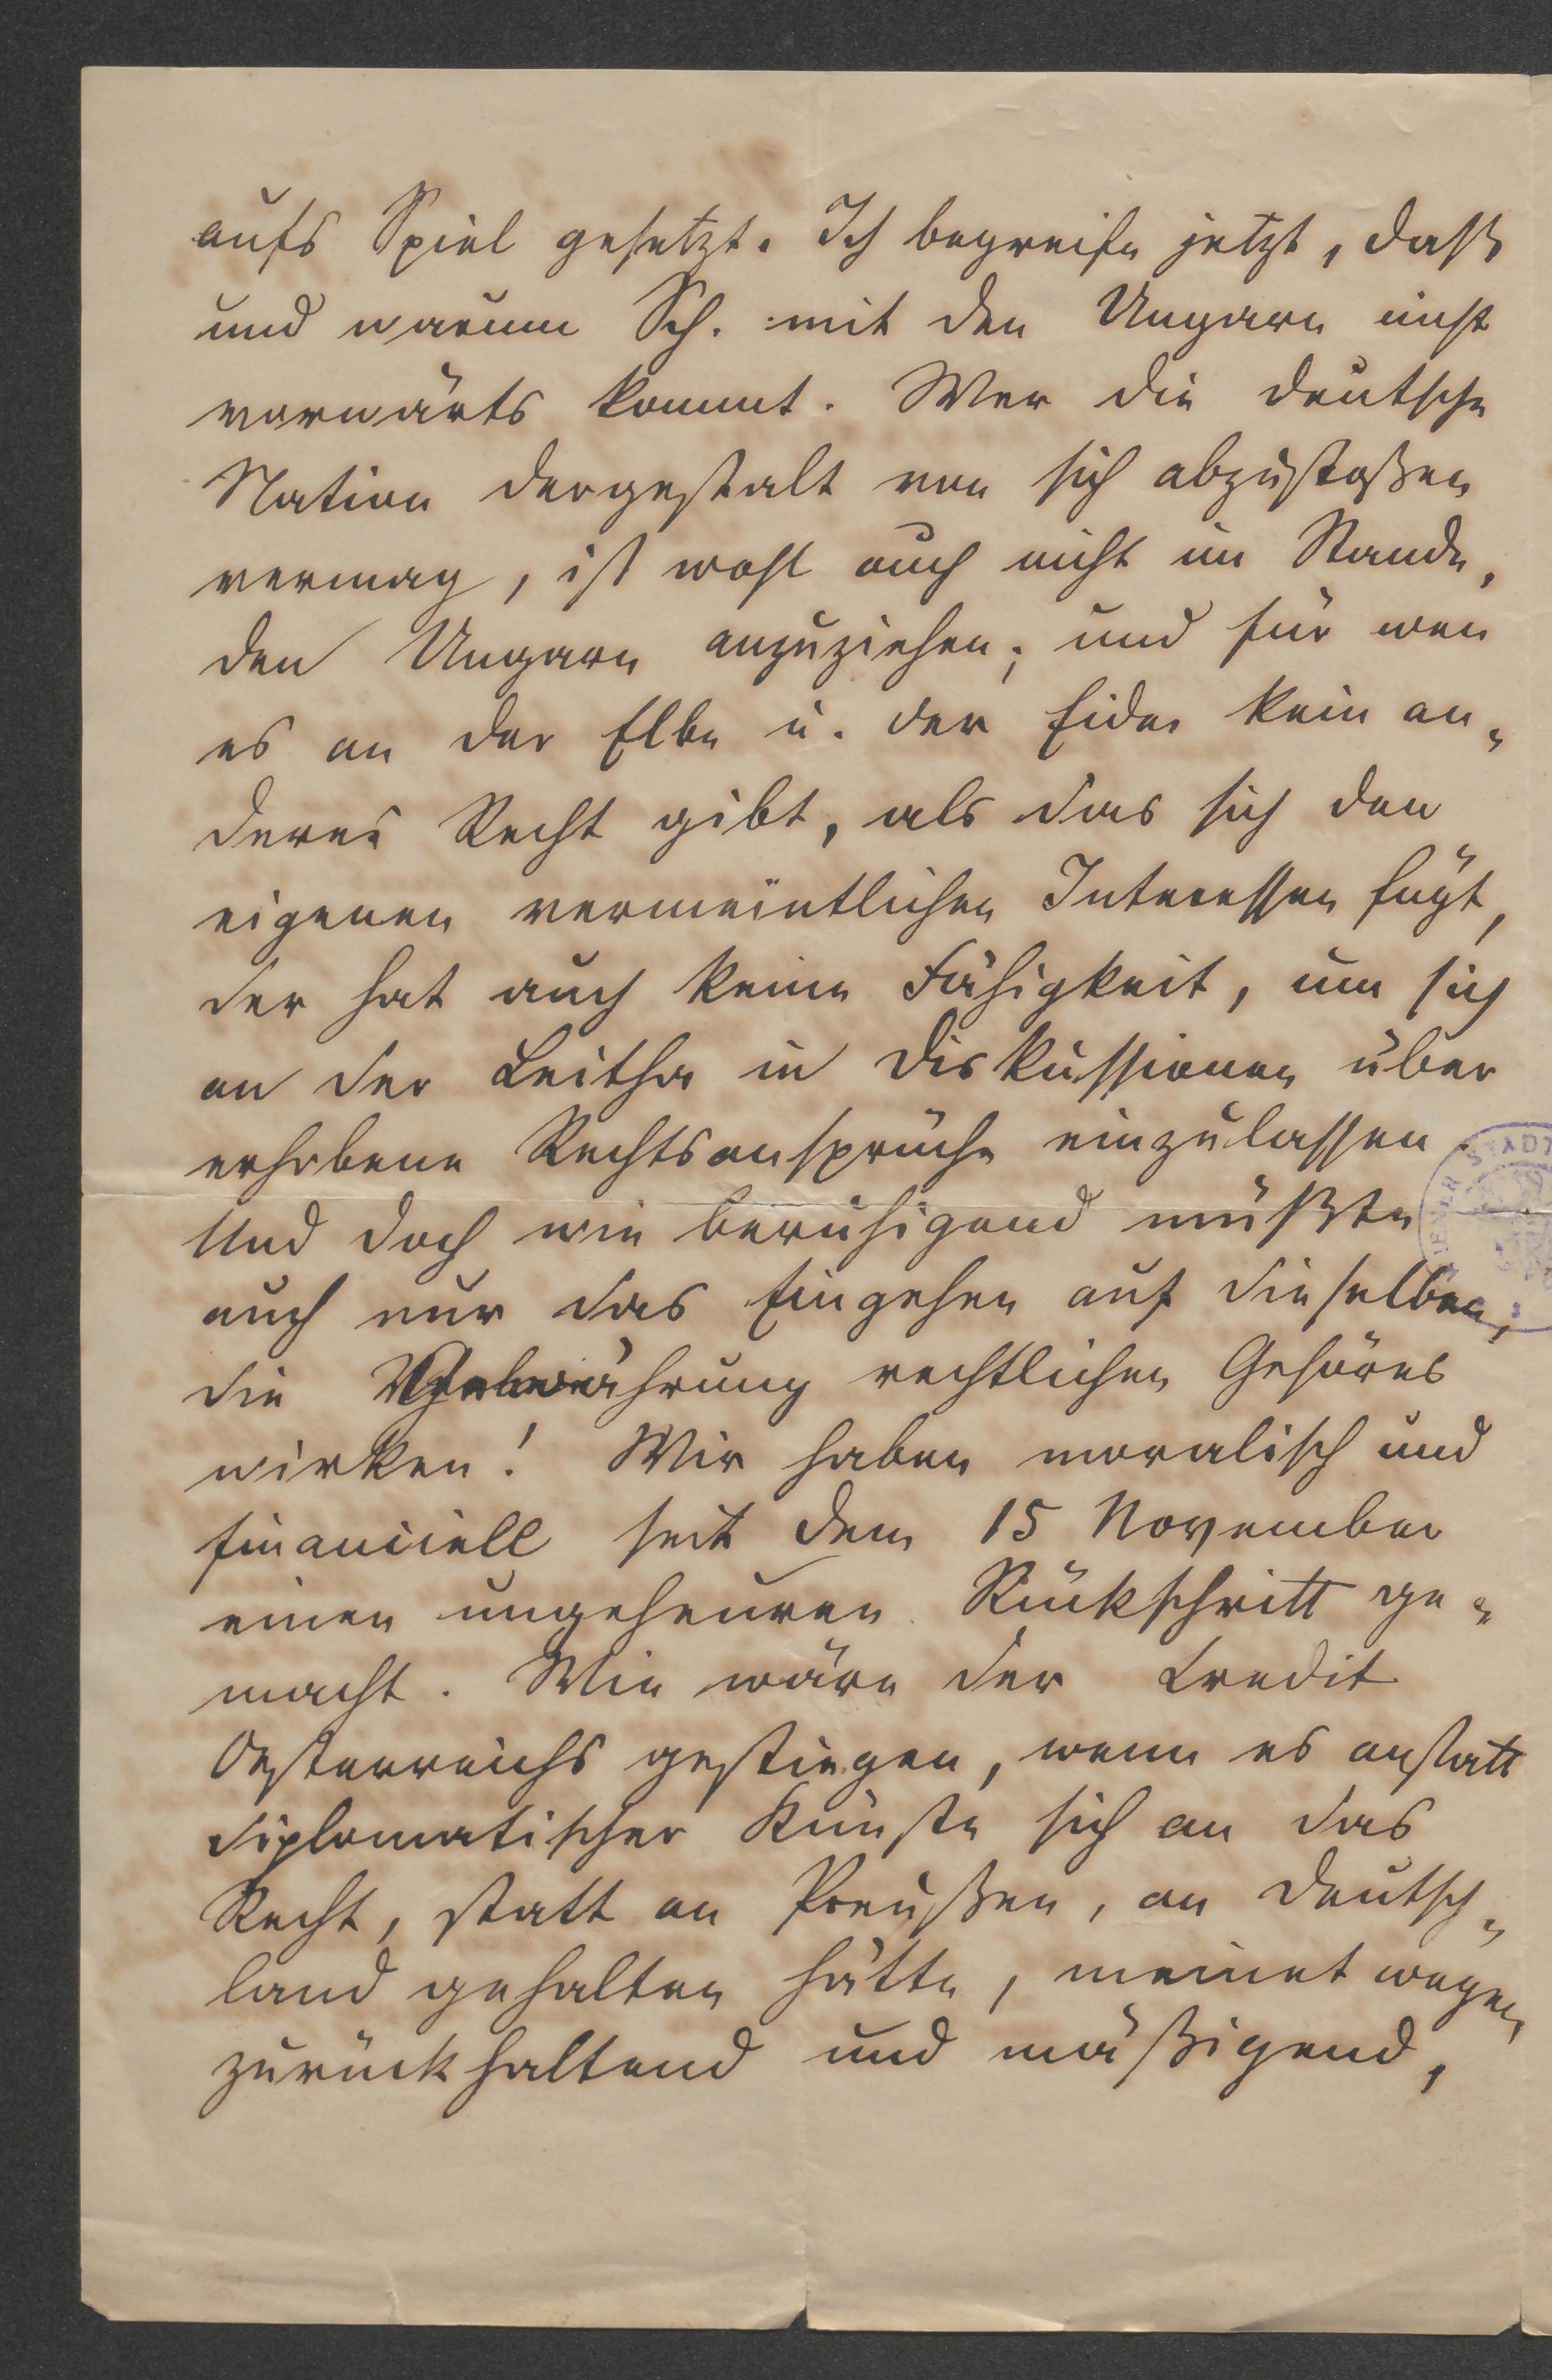 aufs Spiel gesetzt. Ich begreife jetzt, daß
und warum Sch. mit den Ungarn nicht
vorwärts kommt. Wer die deutsche
Nation dergestalt von sich abzustoßen
vermag, ist wohl auch nicht im Stande,
den Ungarn anzuziehen; und für wen
es an der Elbe u. der Eider kein an-
deres Recht gibt, als das sich den
eigenen vermeintlichen Interessen fügt,
der hat auch keine Fähigkeit, um sich
an der Leitha in Diskussionen über
erhobene Rechtsansprüche einzulassen.
Und doch wie beruhigend müßte
auch nur das Eingehen auf dieselben,
die Gewährung rechtlichen Gehöres
wirken! Wir haben moralisch und
financiell seit dem 15 November
einen ungeheuren Rückschritt ge-
macht. Wie wäre der Credit
Oesterreichs gestiegen, wenn es anstatt
diplomatischer Künste sich an das
Recht, statt an Preußen, an Deutsch-
land gehalten hätte, meinet wegen
zurückhaltend und mäßigend,
STADT